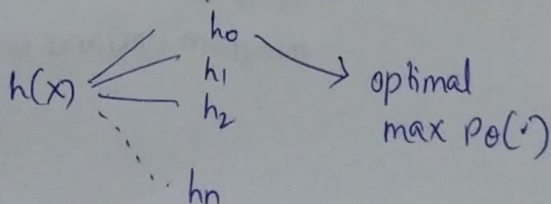 h(x)
h₀
h₁
h₂
hn
optimal
max pθ(·)